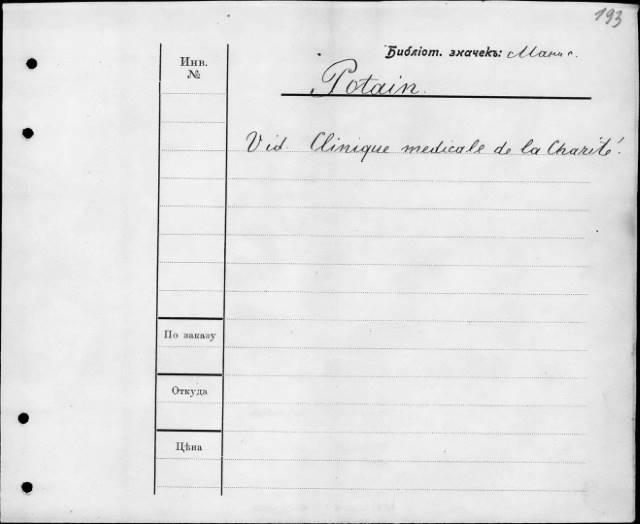 193
Библіот. значекъ:
Инв.
№
Potain.
Vid. Clinique medicale de la Charité.
По заказу
Откуда
Цѣна